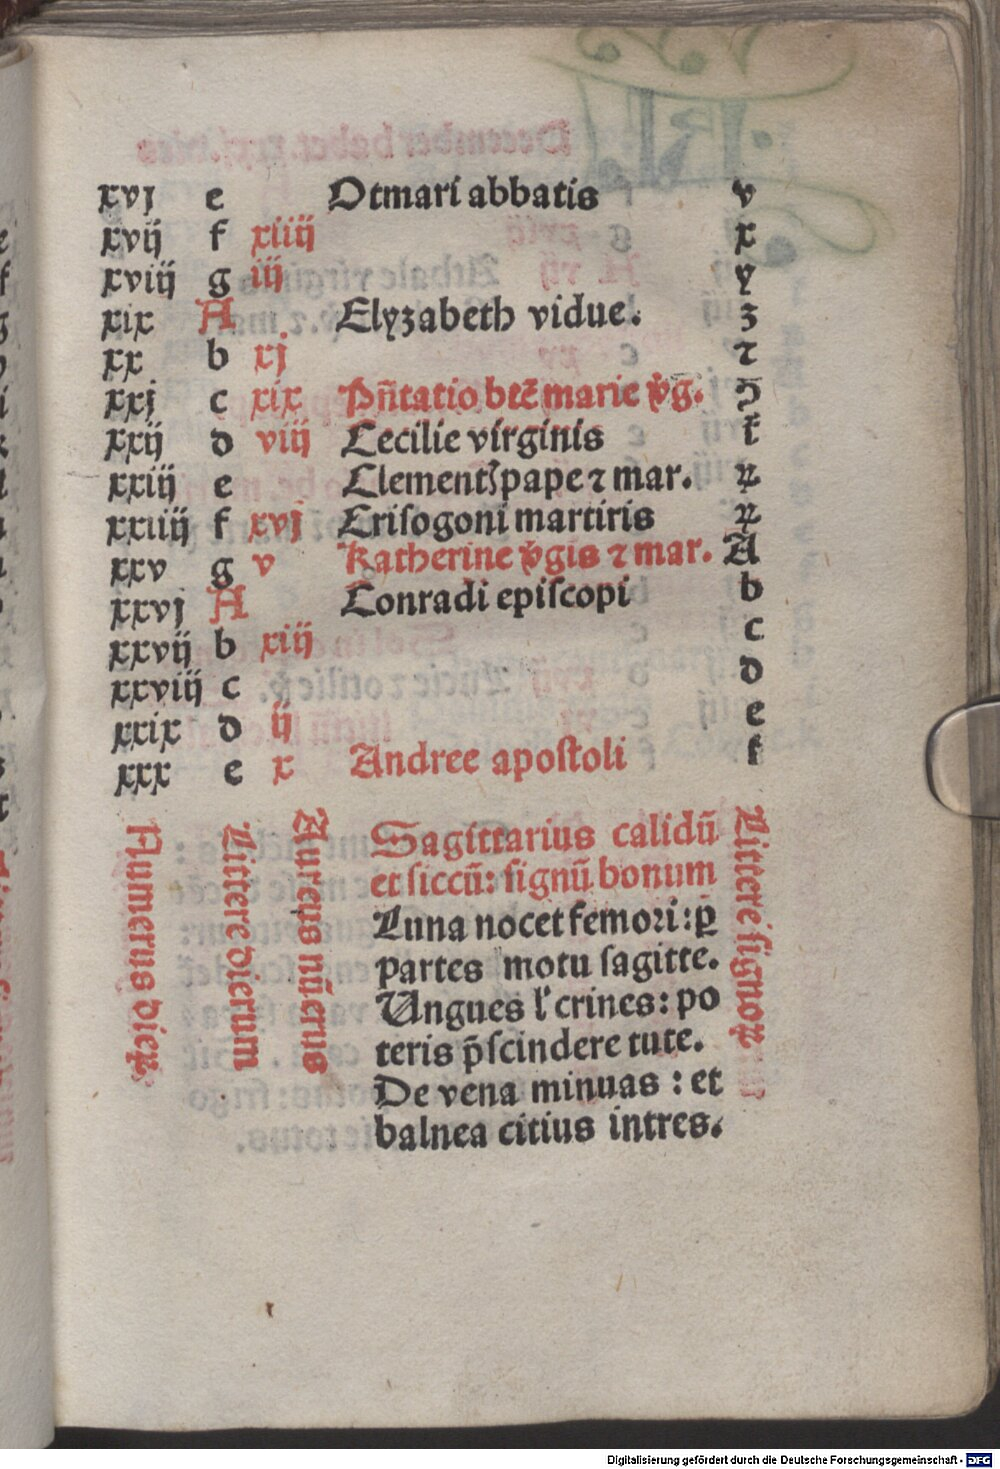 xvj e Otmari abbatis v
xvij f xiiij x
xviij g iij y
xix A Elyzabeth vidue. z
xx b xj ⁊
xxj c xix Pñtatio btē marie v̄g. ꝯ
xxij d viij Cecilie virginis ł
xxiij e Clementꝭ pape ⁊ mar.
xxiiij f xvj Crisogoni martiris
xxv g v Katherine v̄gis ⁊ mar. A
xxvj A Conradi episcopi b
xxvij b xiij c
xxviij c d
xxix d ij e
xxx e x Andree apostoli f
Numerus dieꝝ
Littere dierum
Aureus nūerus
Sagittarius calidū
et siccū: signū bonum
Luna nocet femori: ꝑ
partes motu sagitte.
Ungues l' crines: po
teris p̄scindere tute.
De vena minuas: et
balnea citius intres.
Littere signoꝝ
Digitalisierung gefördert durch die Deutsche Forschungsgemeinschaft - DFG